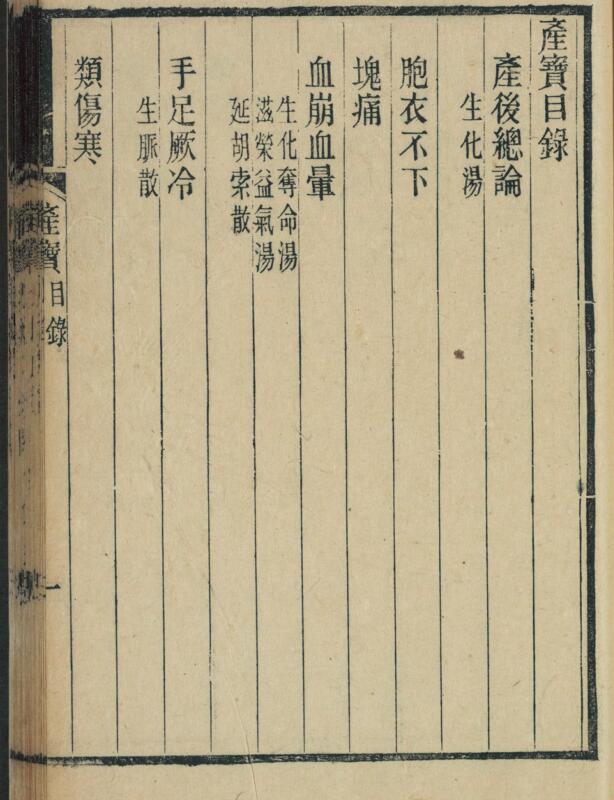 產寶目錄
產後總論
生化湯
胞衣不下
塊痛
血崩血暈
生化奪命湯
滋榮益氣湯
延胡索散
手足厥冷
生脈散
類傷寒
產寶目錄
一